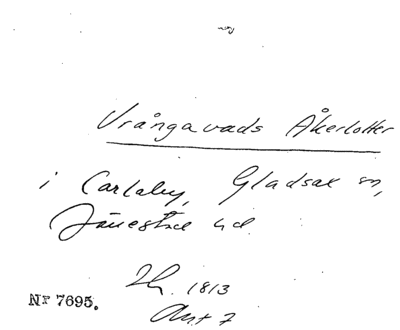 Vrångavads Åkerlotter
i Carlaby, Gladsax sn,
Järrestad hd.
1813
Nr 7695.
Ant 7